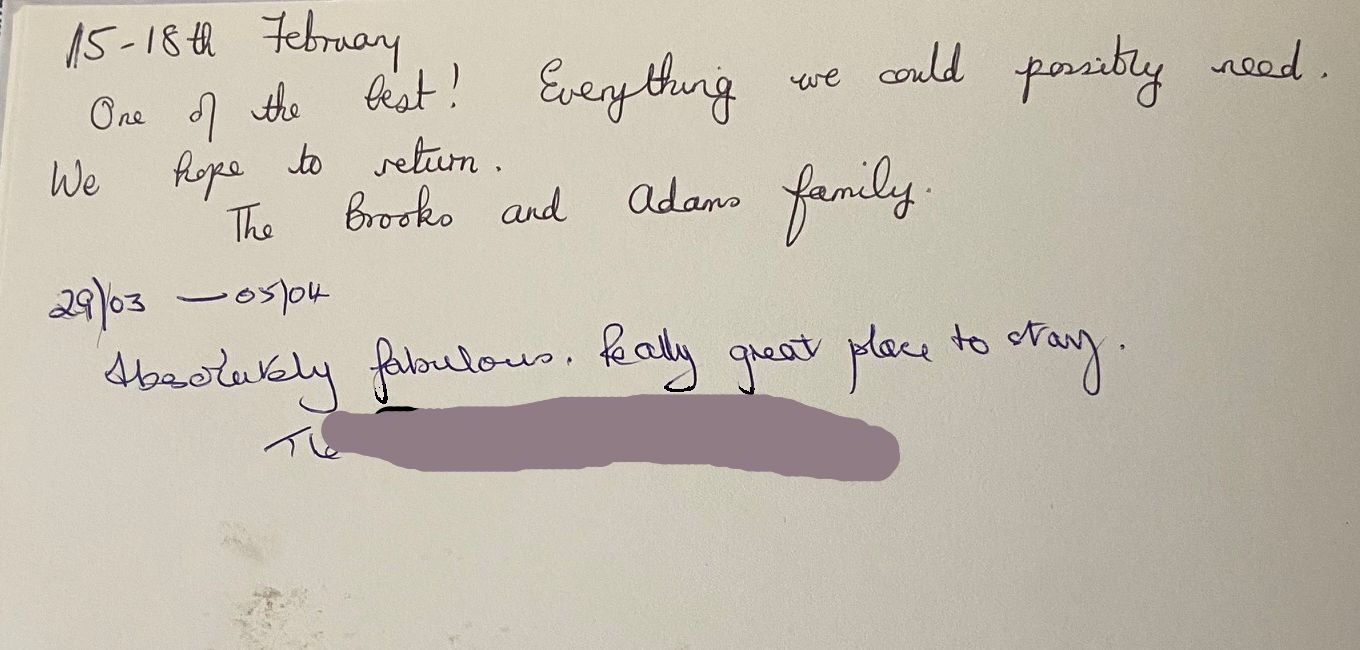 15-18th February
One of the best! Everything we could possibly need.
We hope to return.
The Brooks and Adams family.
29/03 — 05/04
Absolutely fabulous. Really great place to stay.
The